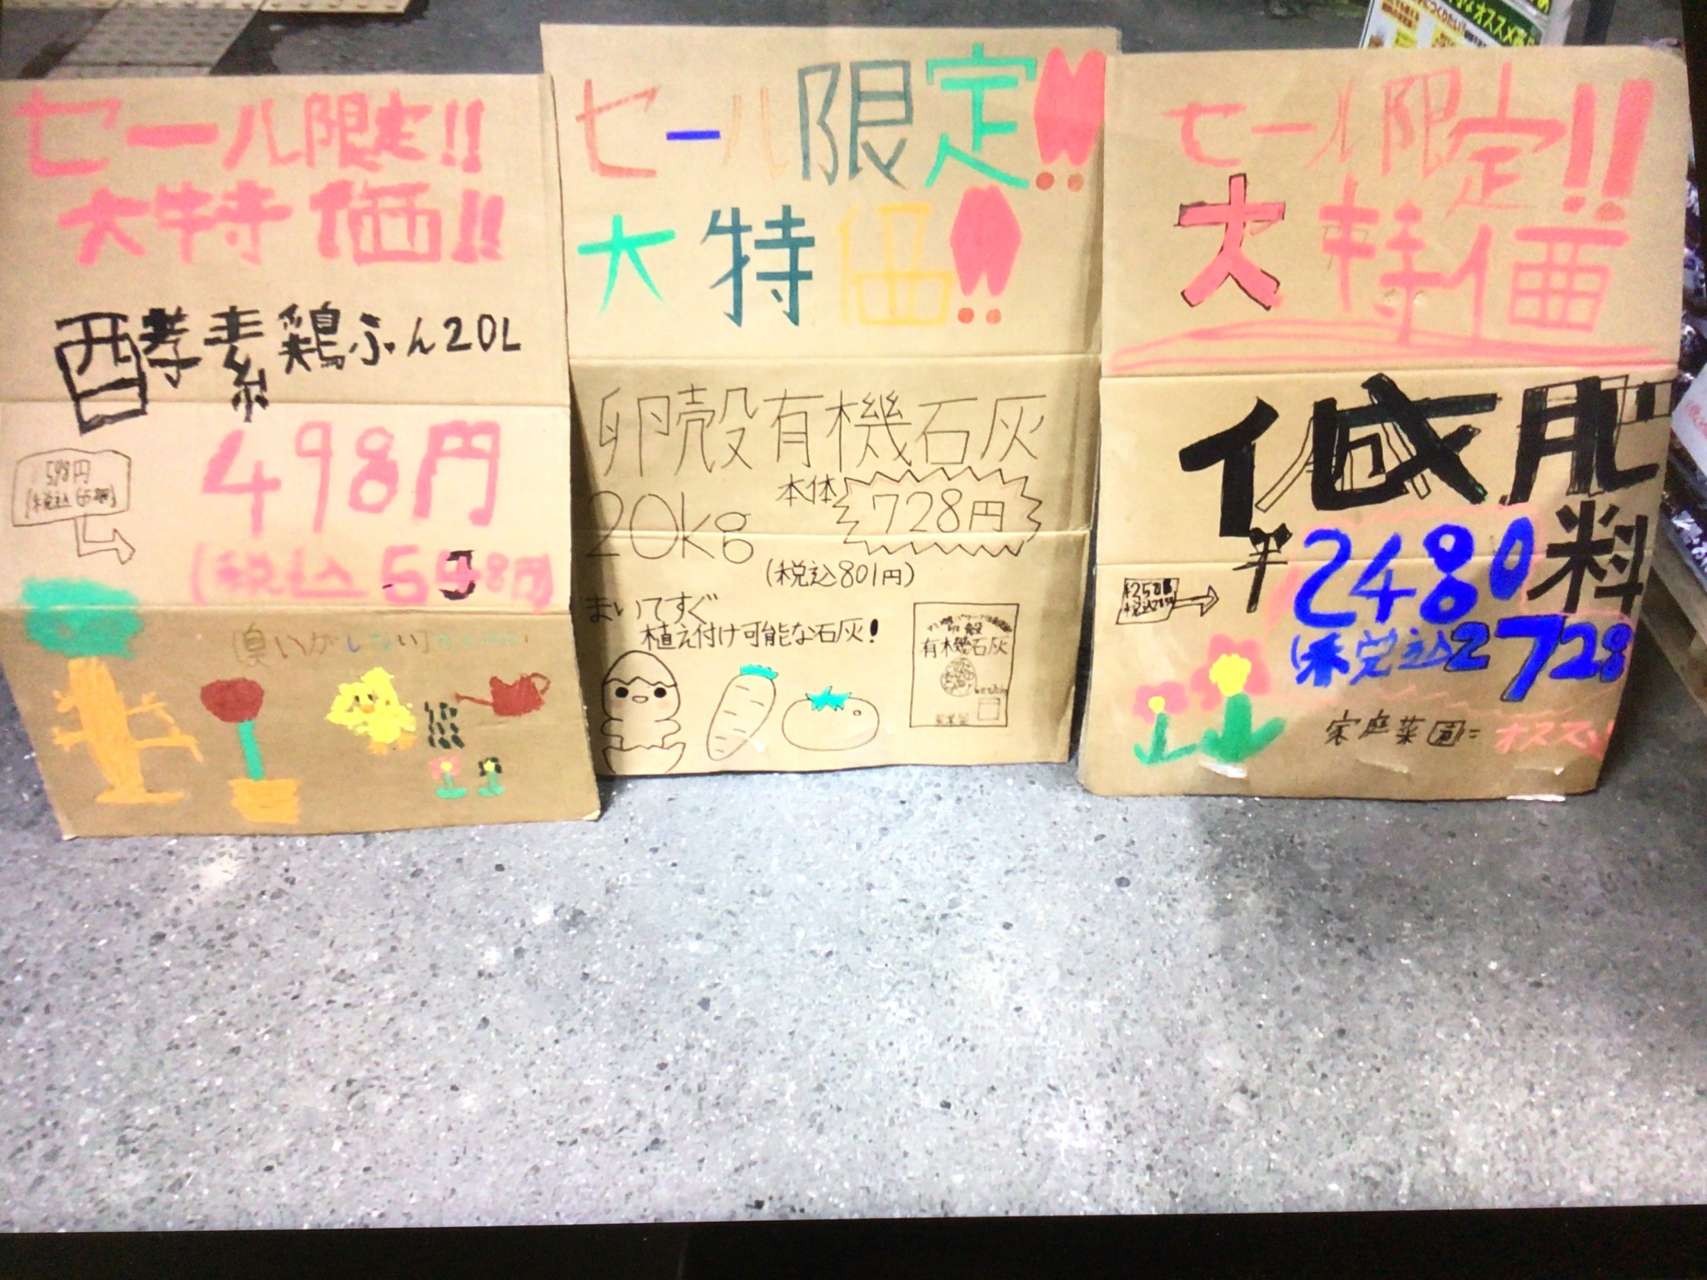 セール限定!!
大特価!!
酵素鶏ふん20L
598円
498円
(税込
セール限定!!
大特価!!
卵殻有機石灰
20kg
本体
728円
(税込801円)
まいてすぐ
植え付け可能な石灰!
有機石灰
セール限定!!
大特価
肥
料
¥2480
(税込2728
家庭菜園に
オススメ